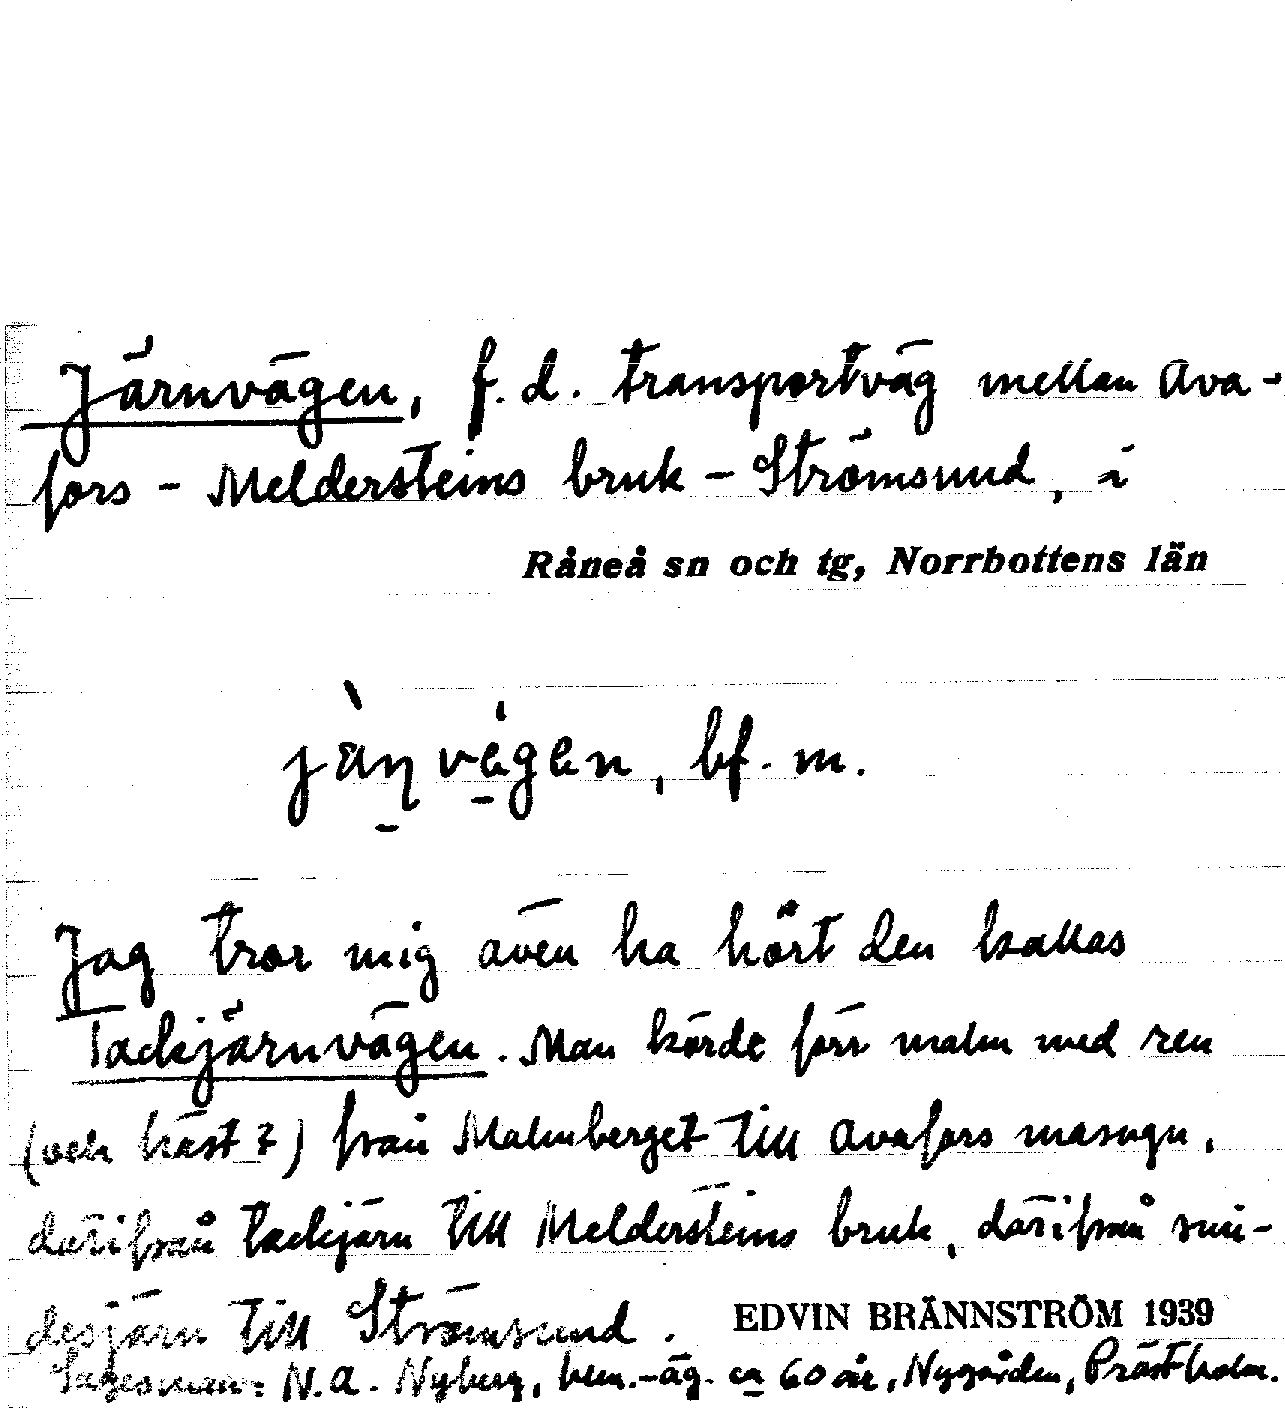 Järnvägen, f.d. transportväg mellan Ava-
fors - Meldersteins bruk - Strömsund, i
Råneå sn och tg, Norrbottens län
bf. m.
Jag tror mig även ha hört den kallas
Tackjärnvägen. Man körde förr malm med ren
(och häst?) från Malmberget till Avafors masugn,
därifrån tackjärn till Meldersteins bruk, därifrån smi-
desjärn till Strömsund. EDVIN BRÄNNSTRÖM 1939
Sagesman: N.A. Nyberg, hem.-äg. ca 60 år, Nygården, Prästholm.